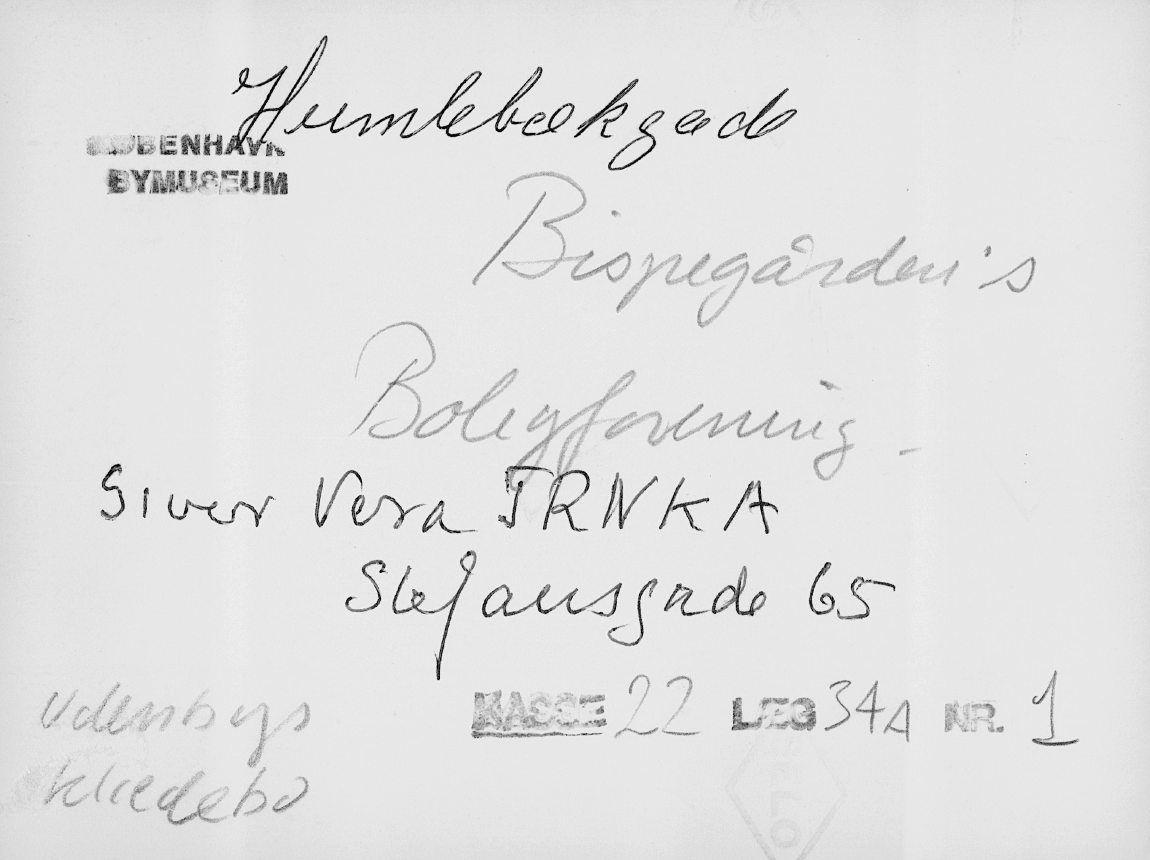 Humlebækgade
KØBENHAVN
BYMUSEUM
Bispegården's
Boligforening -
Giver Vera TRNKA
Stefansgade 65
Udenbys
Klædebo
KASSE 22 LÆG 34A NR. 1